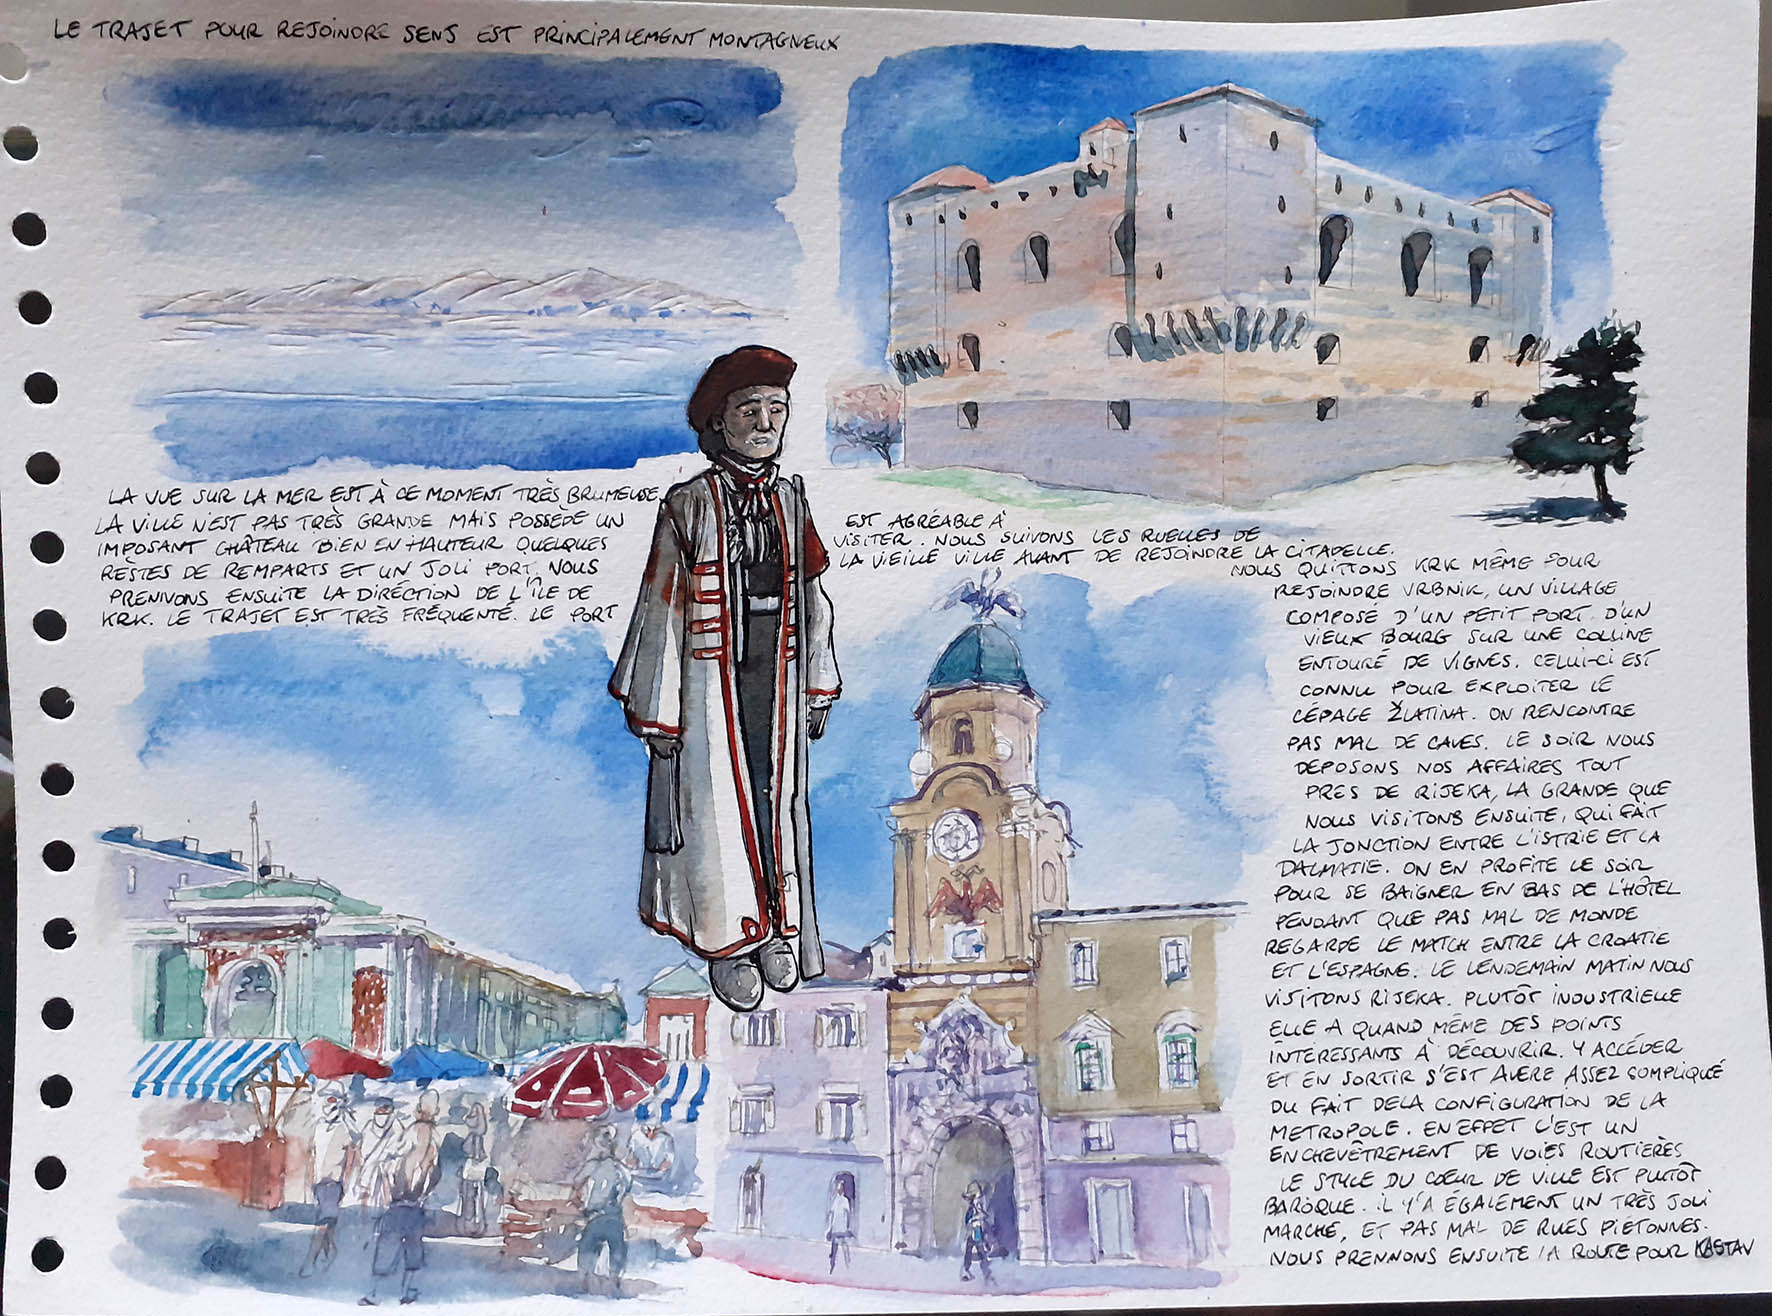 LE TRAJET POUR REJOINDRE SENS EST PRINCIPALEMENT MONTAGNEUX
LA VUE SUR LA MER EST À CE MOMENT TRÈS BRUMEUSE.
LA VILLE N'EST PAS TRÈS GRANDE MAIS POSSÈDE UN
IMPOSANT CHÂTEAU BIEN EN HAUTEUR QUELQUES
RESTES DE REMPARTS ET UN JOLI PORT. NOUS
PRENIVONS ENSUITE LA DIRECTION DE L'ÎLE DE
KRK. LE TRAJET EST TRÈS FRÉQUENTÉ. LE PORT
EST AGRÉABLE À
VISITER. NOUS SUIVONS LES RUELLES DE
LA VIEILLE VILLE AVANT DE REJOINDRE LA CITADELLE.
NOUS QUITTONS KRK MÊME POUR
REJOINDRE VRBNIK, UN VILLAGE
COMPOSÉ D'UN PETIT PORT. D'UN
VIEUX BOURG SUR UNE COLLINE
ENTOURÉ DE VIGNES. CELUI-CI EST
CONNU POUR EXPLOITER LE
CÉPAGE ŽLATINA. ON RENCONTRE
PAS MAL DE CAVES. LE SOIR NOUS
DEPOSONS NOS AFFAIRES TOUT
PRES DE RIJEKA, LA GRANDE QUE
NOUS VISITONS ENSUITE, QUI FAIT
LA JONCTION ENTRE L'ISTRIE ET LA
DALMATIE. ON EN PROFITE LE SOIR
POUR SE BAIGNER EN BAS DE L'HÔTEL
PENDANT QUE PAS MAL DE MONDE
REGARDE LE MATCH ENTRE LA CROATIE
ET L'ESPAGNE. LE LENDEMAIN MATIN NOUS
VISITONS RIJEKA. PLUTÔT INDUSTRIELLE
ELLE A QUAND MÊME DES POINTS
INTÉRESSANTS À DÉCOUVRIR. Y ACCÉDER
ET EN SORTIR S'EST AVERE ASSEZ COMPLIQUÉ
DU FAIT DE LA CONFIGURATION DE LA
METROPOLE. EN EFFET C'EST UN
ENCHEVÊTREMENT DE VOIES ROUTIÈRES
LE STYLE DU CŒUR DE VILLE EST PLUTÔT
BAROQUE. IL Y'A ÉGALEMENT UN TRÈS JOLI
MARCHE, ET PAS MAL DE RUES PIETONNES.
NOUS PRENNONS ENSUITE LA ROUTE POUR KASTAV